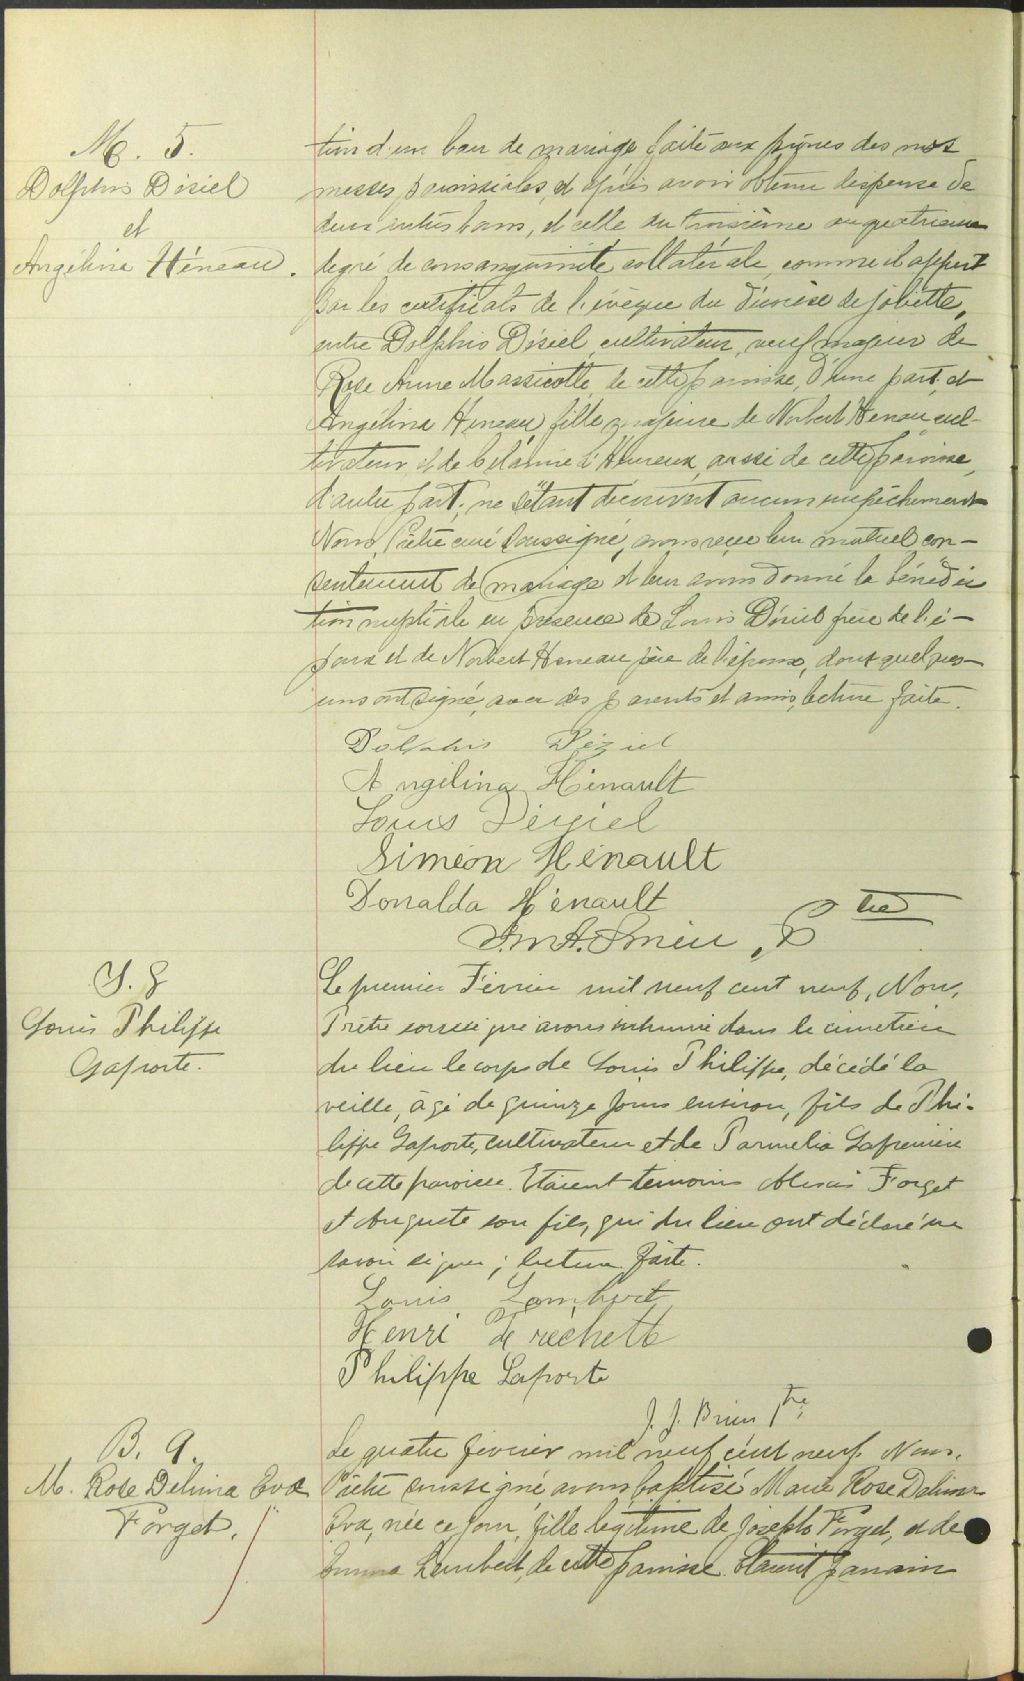 M. 5.
Dolphis Désiel
et
Angélina Héneau.
tion d'un ban de mariage faite aux prônes des nos
messes paroissiales, et après avoir obtenu dispense de
deux autres bans, et celle du troisième au quatrième
degré de consanguinité collatérale, comme il appert
par les certificats de l'évêque du diocèse de Joliette,
entre Dolphis Désiel, cultivateur, veuf majeur de
Rose Anne Massicotte, de cette paroisse, d'une part, et
Angélina Heneau, fille majeure de Norbert Heneau, cul-
tivateur, et de L'Heureux, aussi de cette paroisse,
d'autre part; ne s'étant découvert aucun empêchement
Nous, Prêtre curé soussigné, avons reçu leur mutuel con-
sentement de mariage et leur avons donné la bénédic
tion nuptiale en présence de Louis Désiel frère de l'é-
poux et de Norbert Heneau père de l'épouse, dont quelques-
uns ont signé, avec des parents et amis, lecture faite.
Dolphis Déziel
Angélina Hénault
Louis Déziel
Siméon Hénault
Donalda Hénault
Ptre
S. 8
Louis Philippe
Laporte.
Le premier Février mil neuf cent neuf, Nous,
Prêtre soussigné avons inhumé dans le cimetière
du lieu le corps de Louis Philippe, décédé la
veille, âgé de quinze jours environ, fils de Phi-
lippe Laporte, cultivateur et de Parmelia Lafrenière
de cette paroisse. Etaient temoins Forget
et Auguste son fils, qui du lieu ont déclaré ne
savoir signer; lecture faite.
Louis Lambert
Henri Fréchette
Philippe Laporte
J. J. Brien Ptre
B. 9.
M. Rose Delima Eva
Forget.
Le quatre février mil neuf cent neuf. Nous,
Prêtre soussigné avons baptisé Marie Rose Delima
Eva, née ce jour, fille légitime de Joseph Forget, et de
Emma Lambert, de cette paroisse. Etaient parrain